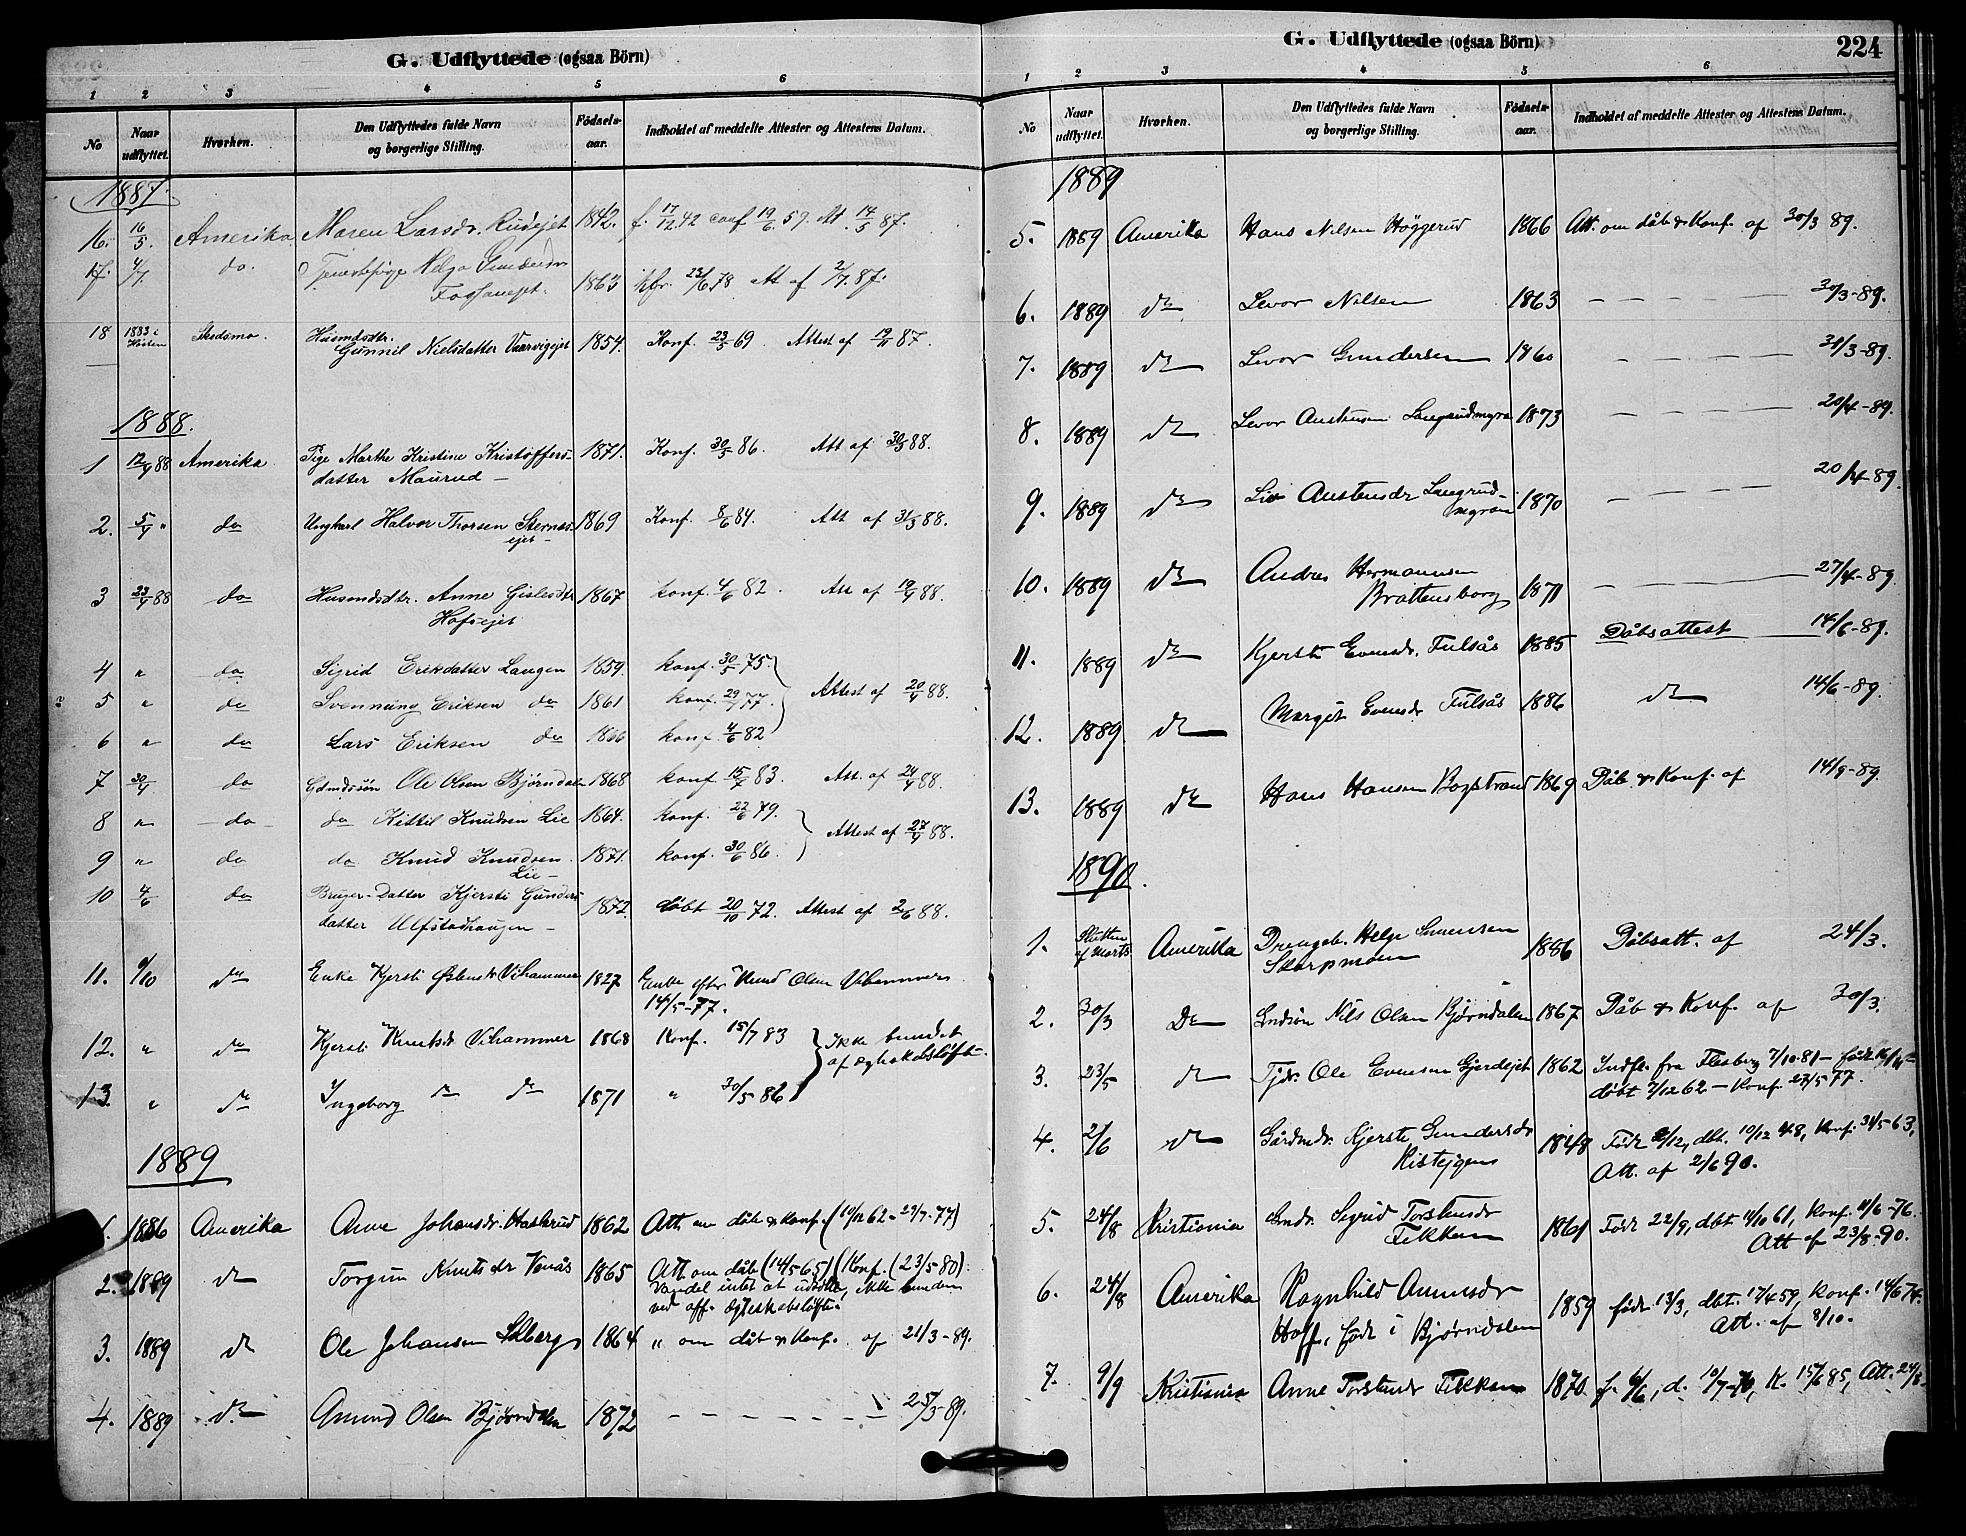 G. Udflyttede (ogsaa Börn)
1 2 3 4 5 6
No Naar udflyttet. Hvorhen. Den Udflyttedes fulde Navn og borgerlige Stilling. Födsels-aar. Indholdet af meddelte Attester og Attestens Datum.
1887.
16. 16/5. Amerika Maren Larsdr. Rudejet 1842. f. 17/12 42 conf 19/6 59. Att. 14/5 87.
17. 4/7. do. Tjenestepige Helga Gundersdr
1863 2/7. 87.
18 1883 i Hösten Skedsmo. Husmdsdtr.
Gunnil Nielsdatter Vaarvigejet 1854. Konf. 23/5 69. Attest af 19/11 87.
1888.
1 12/4 88 Amerika. Pige Marthe Kristine Kristoffers- 1871. Konf. 30/5 86. Att af 30/3 88.
datter Maurud
2. 5/4 " do Ungkarl Halvor Thorsen Sternes- 1869 Konf. 8/6 84. Att af 31/3 88.
ejet
3 23/4 88 do Husmdsdtr. Anne Gislesdtr 1867 konf. 4/6 82. Att af 19/4 88.
Hofsejet
4 " do Sigrid Eriksdatter Langen 1859. konf. 30/5 75.
5 " do Svennung Eriksen do 1861 konf. 29/ 77. Attest af 20/4 88.
6 " do Lars Eriksen do 1866 konf. 4/6 82
7 30/4 do Gdmdssön Ole Olsen Björndalen 1868 konf. 15/7 83. Att. af 24/4 88.
8 " do do Kittil Knudsen Lie 1864. konf. 22/6 79.
Attest af 27/4 88.
9 " do do Knud Knudsen 1871. konf. 30/6 86.
Lie
10 4/6 do Datter Kjersti Gunders- 1872. döbt 20/10 72. Attest af 2/6 88.
datter Ulfstadhaugen
11. /10 do Enke Kjersti Östensdr Vihammer 1827 Enke efter Knud Olsen Vihammer
14/5-77.
12. " do Kjersti Knutsdr Vihammer 1868 Konf. 15/7 83 Ikke bundet
af ægteskabslöfte.
13. " do Ingeborg do do 1871 " 30/5 86
1889
1. 1886 Amerika Anne Johansdr. Haslerud 1862 Att. om dåb & Konf. (10/12 62 - 29/7-77)
2. 1889 do Torgun Knutsdr Venås 1865 Att. om dåb (14/5 65) (Konf. (23/5-80)
Vandel intet at udsætte, ikke bunden
ved off. ægteskabslöfte.
3. 1889 do Ole Johansen Skberg 1864 " om dåb & Konf. af 21/3-89.
4. 1889 do Amund Olsen Björndalen 1872 25/3-89.
G. Udflyttede (ogsaa Börn)
224
1 2 3 4 5 6
No Naar udflyttet. Hvorhen. Den Udflyttedes fulde Navn og borgerlige Stilling. Födsels-aar. Indholdet af meddelte Attester og Attestens Datum.
1889
5. 1889 Amerika Hans Nilsen Höggerud 1866 Att. om dåb & Konf. af 30/3 89.
6. 1889 do Levor Nilsen 1863 30/3-89.
7. 1889 do Levor Gundersen 1860 31/3-89.
8. 1889 do Levor Austensen Langrudmyra 1873 20/4-89.
9. 1889 do Liv Austensdr Langrud- 1870 20/4-89.
myra
10. 1889 do Andres Hermansen
Brattensborg 1871 27/4-89.
11. 1889 do Kjersti Evensdr. Fulsås 1885 Dåbsattest 14/6-89.
12. 1889 do Margit Evensdr Fulsås 1886 do 14/6-89.
13. 1889 do Hans Hansen Bogstrand 1869 Dåb & Konf. af 14/9-89.
1890.
1. Slutten af Marts Amerika Drengeb. Helge Simensen
Skarpmoen 1886 Dåbsatt. af 24/3.
2. 30/3 Do Nils Olsen Björndalen 1867 Dåb & Konf. af 30/3.
3. 23/5 do Tjdr. Ole Evensen Gjerdejet 1862 Indfl. fra Flesberg 7/10-81 - född
döbt 7/12 62 - Konf. 27/5 77.
4. 2/6 do Gårdmdr. Kjersti Gundersdr 1848 Född /12, dbt. 10/12 48, Konf. 31/5-63,
Ristejgens Att. af 2/6 90.
5. 24/8 Kristiania Gmdr. Sigrid Torstensdr 1861 Född 22/9, dbt. /10 61, Konf. 11/6-76.
Fekken Att af 23/8-90.
6. 24/8 Amerika Ragnhild Amundsdr 1859 född 13/3, dbt. 17/4 59, Konf. 14/6 74.
Hoff, född i Björndalen Att. af 8/10.
7. 9/9 Kristiania Anne Torstensdr Fekken 1870. f. 6/6, d. 10/7-70, K. 15/6 85, Att. 24/8